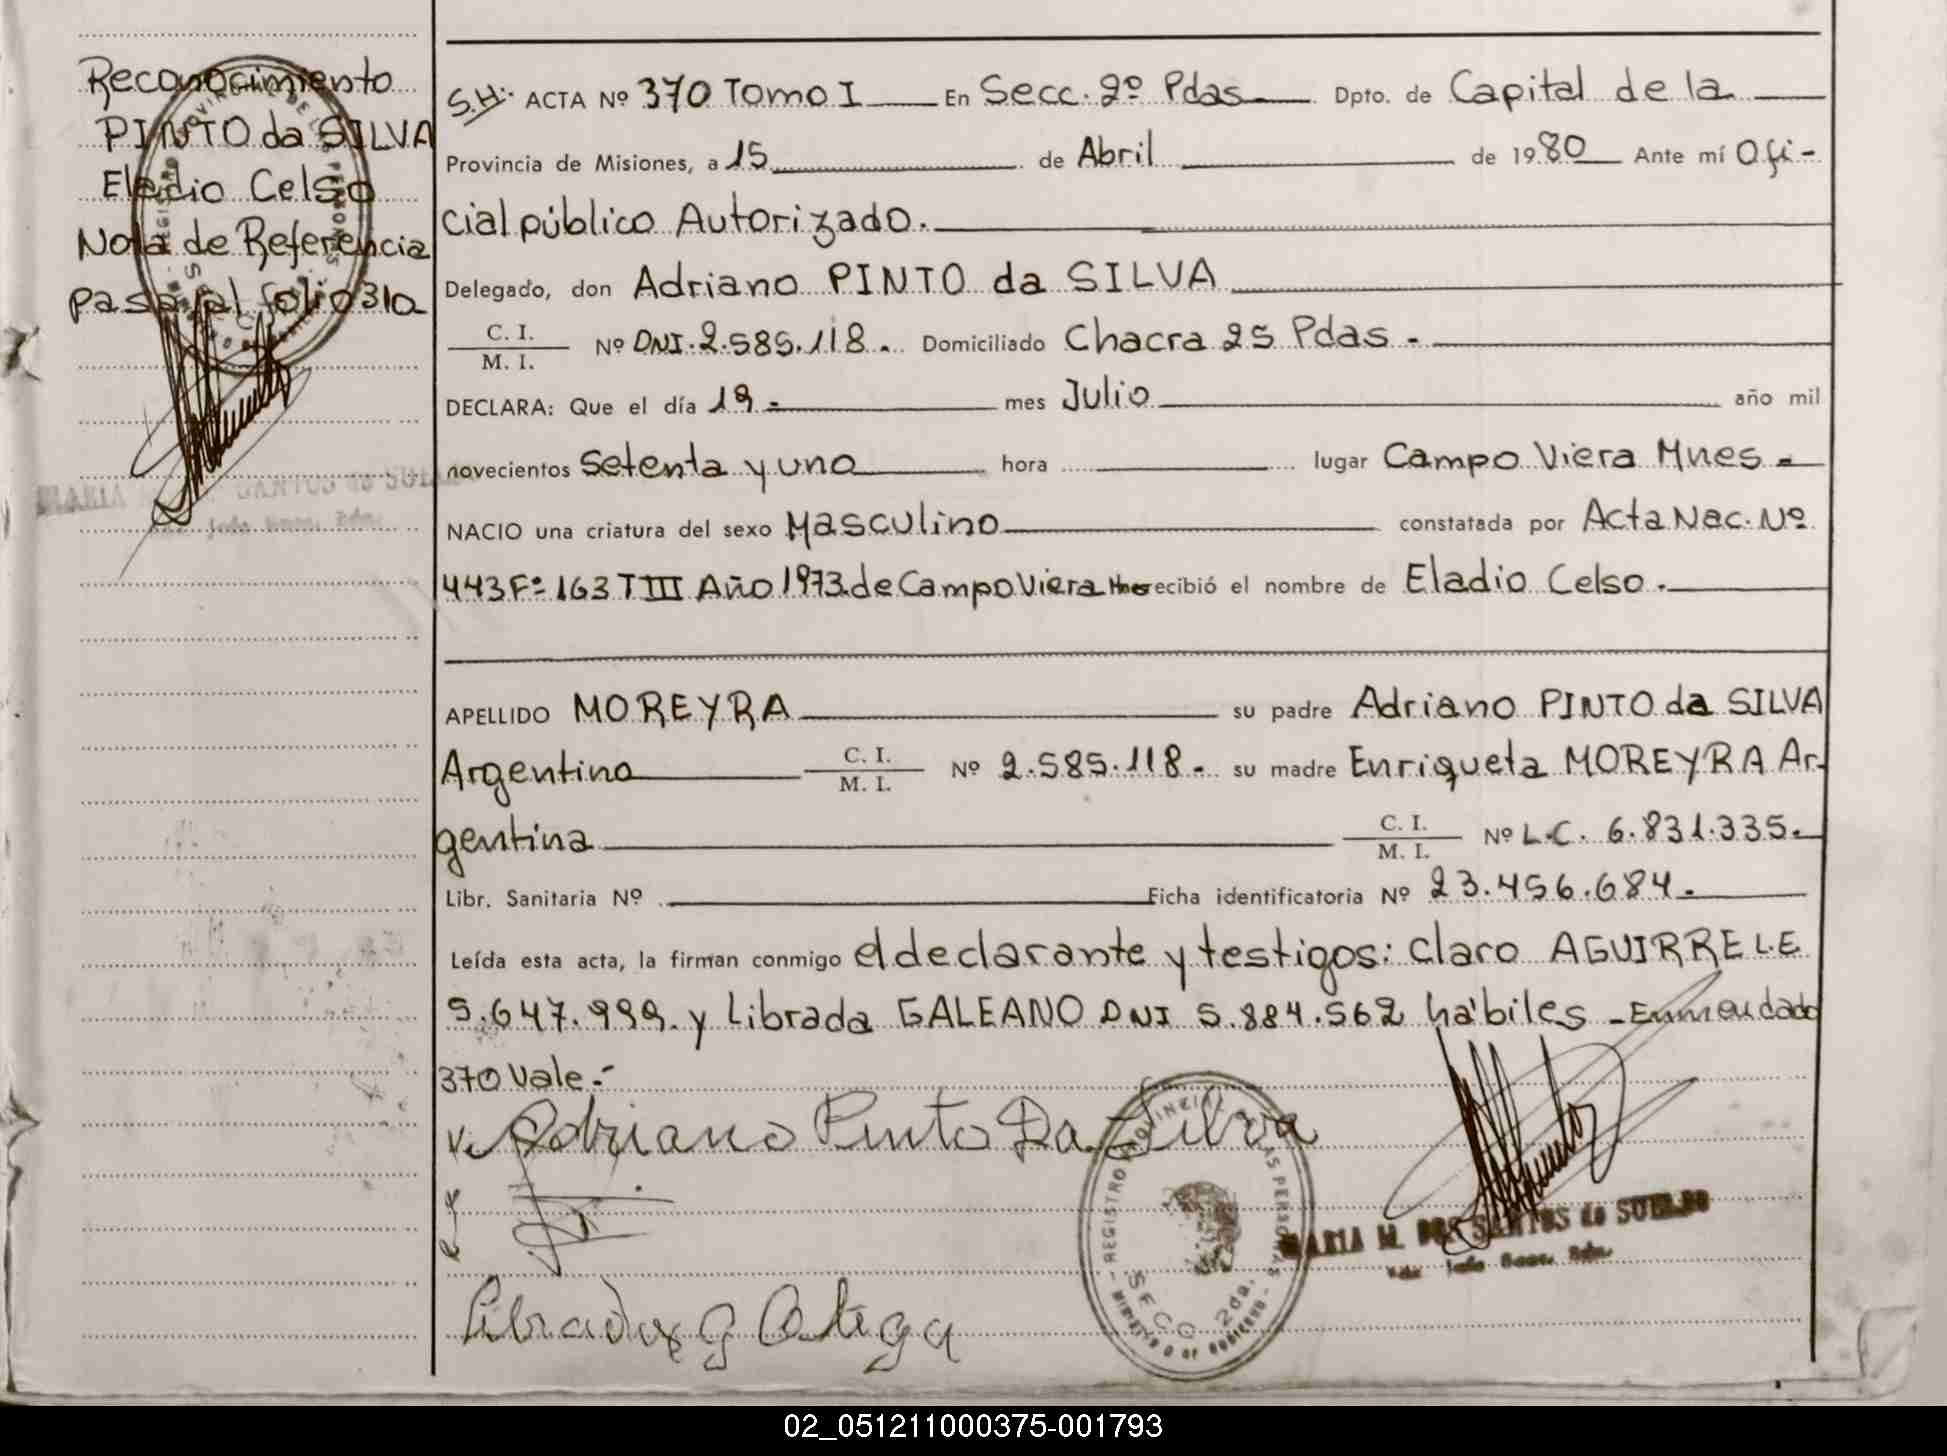 Reconocimiento
PINTO da SILVA
Eladio Celso
Nota de Referencia
pasa al folio 310
S.H: ACTA Nº 370 Tomo I En Secc. 2º Pdas Dpto. de Capital de la
Provincia de Misiones, a 15 de Abril de 1980 Ante mí Ofi-
cial público Autorizado.
Delegado, don Adriano PINTO da SILVA
C. I.
M. I.
Nº DNI. 2.585.118. Domiciliado Chacra 25 Pdas -
DECLARA: Que el día 19 - mes Julio año mil
novecientos Setenta y uno hora lugar Campo Viera Mnes -
NACIO una criatura del sexo Masculino constatada por Acta Nac. Nº
443 Fº 163 T III Año 1973 de Campo Viera Mnes recibió el nombre de Eladio Celso.
APELLIDO MOREYRA su padre Adriano PINTO da SILVA
Argentino C. I. M. I. Nº 2.585.118 - su madre Enriqueta MOREYRA Ar-
gentina C. I. M. I. Nº L.C. 6.831.335.
Libr. Sanitaria Nº Ficha identificatoria Nº 23.456.684.
Leída esta acta, la firman conmigo el declarante y testigos: Claro AGUIRRE L.E
5.647.999. y Librada GALEANO DNI 5.884.562 hábiles - Enmendado
370 Vale.-
Adriano Pinto Da Silva
REGISTRO PROVINCIAL DE LAS PERSONAS
SECC 2da.
MINISTERIO DE GOBIERNO
MARIA M. DOS SANTOS de SUELDO
Librada g Ortega
02_051211000375-001793